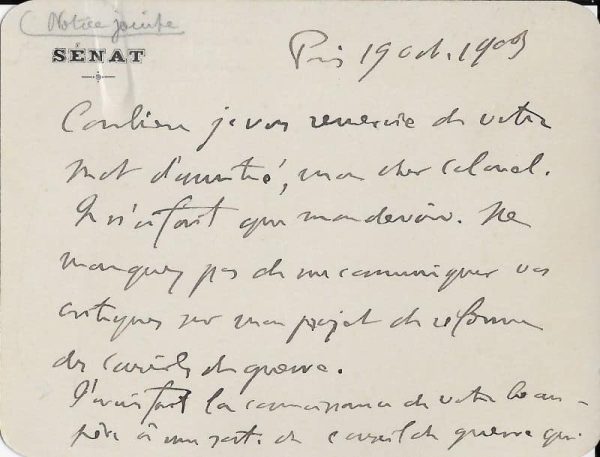 (Notice jointe
SÉNAT
Paris 19 Oct. 1903
Combien je vous remercie de votre
mot d'amitié, mon cher Colonel.
Je n'ai fait que mon devoir. Ne
manquez pas de me communiquer vos
critiques sur mon projet de réforme
des conseils de guerre.
J'avais fait la connaissance de votre beau-
père à une sorte de conseil de guerre qui